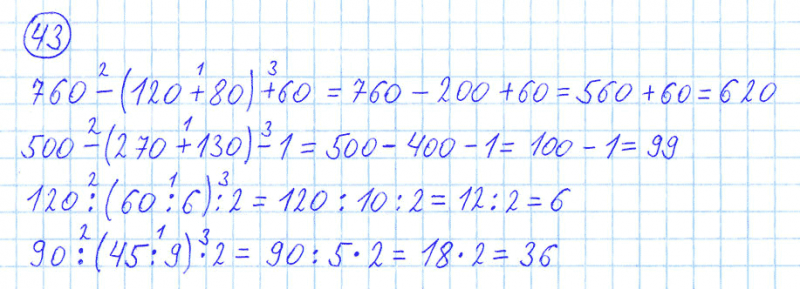 43
760 - (120 + 80) + 60 = 760 - 200 + 60 = 560 + 60 = 620
500 - (270 + 130) - 1 = 500 - 400 - 1 = 100 - 1 = 99
120 : (60 : 6) : 2 = 120 : 10 : 2 = 12 : 2 = 6
90 : (45 : 9) · 2 = 90 : 5 · 2 = 18 · 2 = 36